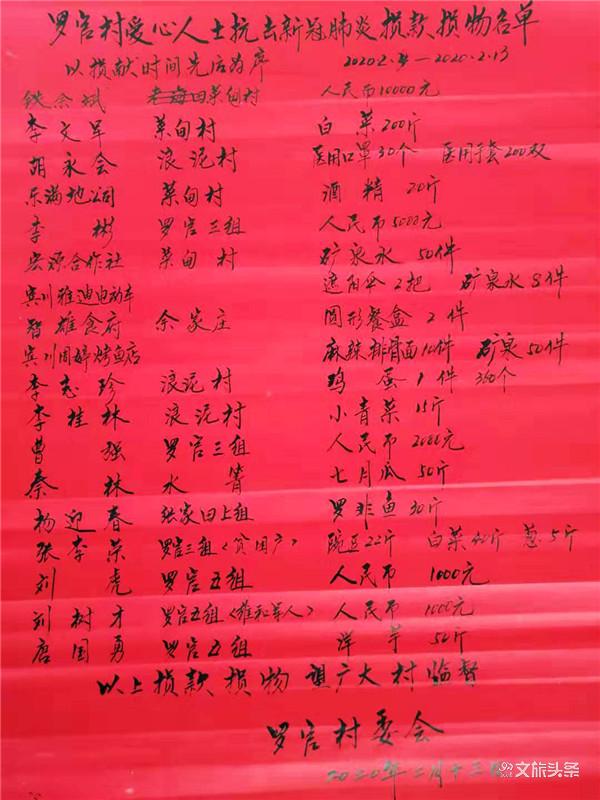 罗官村爱心人士抗击新冠肺炎捐款捐物名单
以捐献时间先后为序 2020.2. — 2020.2.13
铁余斌 老海田菜甸村 人民币10000元
李文早 菜甸村 白菜200斤
胡永会 浪泥村 医用口罩30个 医用手套200双
乐满地公司 菜甸村 酒精20斤
李彬 罗官三组 人民币5000元
宏源合作社 菜甸村 矿泉水50件
宾川雅迪电动车 遮阳伞2把 矿泉水8件
智雄食府 余家庄 圆形餐盒2件
宾川周婷烤鱼店 麻辣排骨面10件 矿泉50件
李志珍 浪泥村 鸡蛋1件 360个
李桂林 浪泥村 小青菜15斤
曹强 罗官三组 人民币2000元
秦林 水箐 七月瓜50斤
杨迎春 张家田上组 罗非鱼30斤
张李荣 罗官三组〈贫困户〉 豌豆22斤 白菜40斤 葱5斤
刘虎 罗官五组 人民币1000元
刘树才 罗官五组〈雍和军人〉 人民币1000元
唐国勇 罗官五组 洋芋50斤
以上捐款捐物望广大村监督
罗官村委会
2020年二月十三日
文旅头条